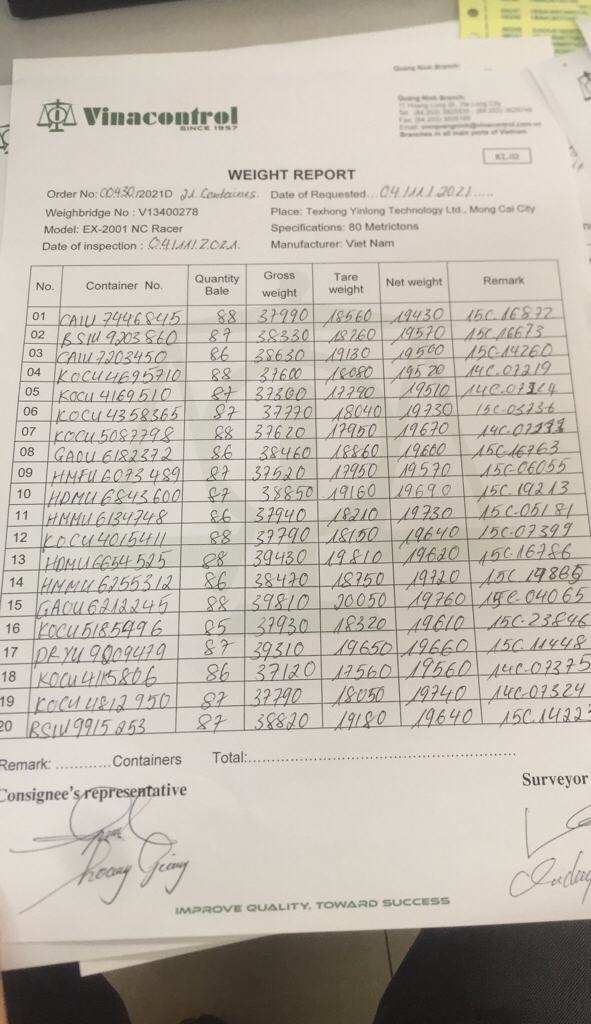 Quang Ninh Branch:
Vinacontrol
SINCE 1957
Quang Ninh Branch:
Branches in all main ports of Vietnam
KL.02
WEIGHT REPORT
Order No: 00930/2021D 21 Containers. Date of Requested...04/11/2021.....
Weighbridge No : V13400278 Place: Texhong Yinlong Technology Ltd., Mong Cai City
Model: EX-2001 NC Racer Specifications: 80 Metrictons
Date of inspection : 04/11/2021. Manufacturer: Viet Nam
No. Container No. Quantity Bale Gross weight Tare weight Net weight Remark
01 CAIU 7446845 88 37990 18560 19430 15C.16872
02 BSIU 9203860 87 38330 18760 19570 15C.16673
03 CAIU 7203450 86 38630 19130 19500 15C-14260
04 KOCU 4695710 88 37600 18080 19520 14C.07219
05 KOCU 4169510 87 37300 17790 19510
06 KOCU 4358365 87 37770 18040 19730 15C-03736
07 KOCU 5087798 88 37620 17950 19670
08 GAOU 6182372 86 38460 18860 19600 15C.16763
09 HMFU 6073489 87 37520 17950 19570 15C-06055
10 HDMU 6843600 87 38850 19160 19690 15C.19213
11 HMMU 6134748 86 37940 18210 19730 15C-05181
12 KOCU 4015411 88 37790 18150 19640 15C-07399
13 HDMU 6654525 88 39430 19810 19620 15C.16786
14 HMMU 6255312 86 38470 18750 19720 15C 19885
15 GAOU 6212245 88 39810 20050 19760 15C-04065
16 KOCU 5185496 85 37930 18320 19610 15C-23846
17 DRYU 9009479 87 39310 19650 19660 15C.11448
18 KOCU 4115806 86 37120 17560 19560 14C-07375
19 KOCU 4812950 87 37790 18050 19740 14C-07324
20 BSIU 9915253 87 38820 19180 19640 15C.1422
Remark: ............Containers Total:..........................................................
Consignee's representative Surveyor
Hoang Giang
IMPROVE QUALITY, TOWARD SUCCESS